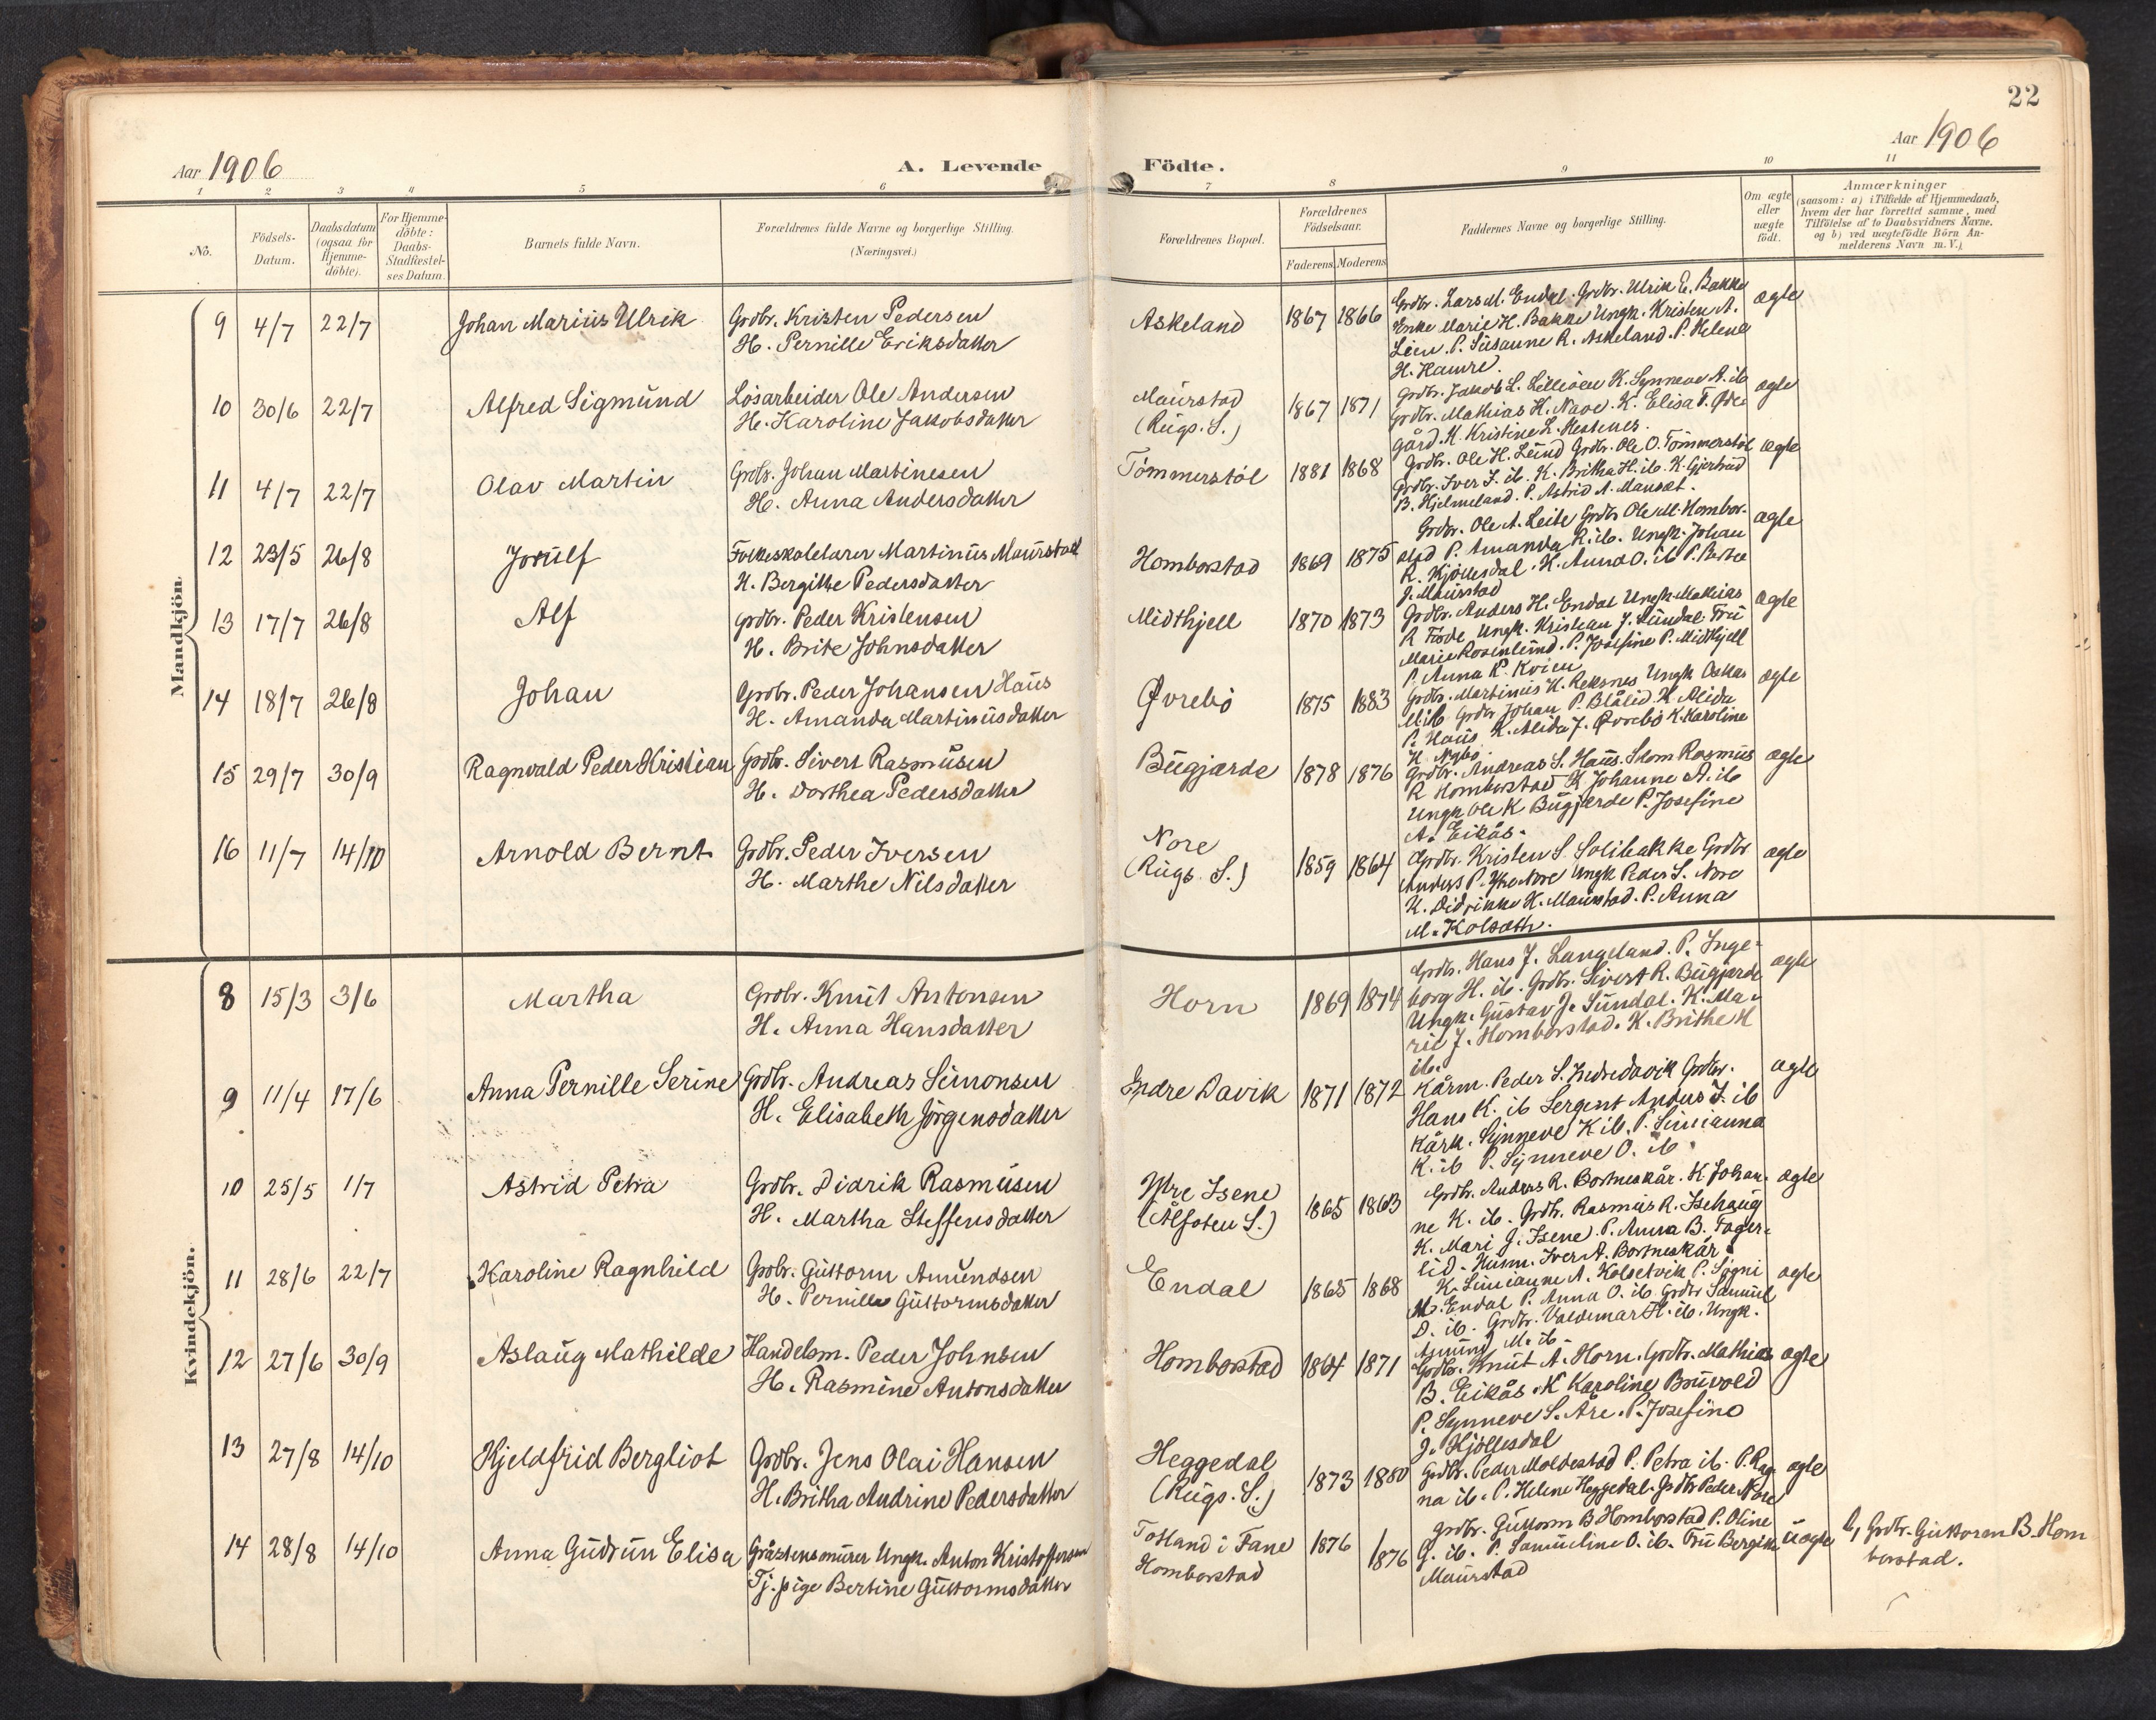 22
Aar 1906
A. Levende
Födte.
Aar 1906
1 2 3 4 5 6 7 8 9 10 11
No.
Födsels-
Datum.
Daabsdatum
(ogsaa for
Hjemme-
döbte).
For Hjemme-
döbte:
Daabs-
Stadfæstel-
ses Datum.
Barnets fulde Navn.
Forældrenes fulde Navne og borgerlige Stilling.
(Næringsvei.)
Forældrenes Bopæl.
Forældrenes
Födselsaar.
Faderens. Moderens.
Faddernes Navne og borgerlige Stilling.
Om ægte
eller
uægte
født.
Anmærkninger
(saasom: a) i Tilfælde af Hjemmedaab,
hvem der har forrettet samme, med
Tilføielse af to Daabsvidners Navne,
og b) ved uægtefödte Börn An-
melderens Navn m. V.)
Mandkjön.
9 4/7 22/7 Johan Marius Ulrik
Grdbr. Kristen Pedersen
H. Pernille Eriksdatter
Askeland 1867 1866
Grdbr. Lars M. Endal. Grdbr. Ulrik E. Bakke
Enke Marie H. Bakke Ungk. Kristen A.
Lien. P. Susanne R. Askeland. P. Helene
H. Hamre.
ægte
10 30/6 22/7 Alfred Sigmund
Lösarbeider Ole Andersen
H. Karoline Jakobsdatter
Maurstad
(Rugs. S.)
1867 1871
Grdbr. Jakob L. Lilleöen K. Synneve A. ib
Grdbr. Mathias H. Nave. K. Elisa T. Øde-
gård. K. Kristine L. Hestenes.
ægte
11 4/7 22/7 Olav Martin
Grdbr. Johan Martinesen
H. Anna Andersdatter
Tömmerstöl 1881 1868
Grdbr. Ole H. Lund Grdbr. Ole O. Tömmerstöl
Grdbr. Iver I. ib. K. Britha H. ib. K. Gjertrud
B. Hjelmeland. P. Astrid A. Mansæt.
ægte
12 23/5 26/8 Jorulf
Folkeskolelærer Martinus Maurstad
H. Bergithe Pedersdatter
Homborstad 1869 1875
Grdbr. Ole A. Leite Grdbr Ole M. Hombor-
stad P. Amanda R. ib. Ungk. Johan
R. Kjöllesdal. K. Anna O. ib P. Bertea
J. Maurstad
ægte
13 17/7 26/8 Alf
Grdbr. Peder Kristensen
H. Brite Johnsdatter
Midthjell 1870 1873
Grdbr. Anders H. Endal Ungk. Mathias
R Förde Ungk. Kristian J. Sundal. Fru
Marie Rosenlund. P. Josefine P. Midthjell
P. Anna P. Kvien
ægte
14 18/7 26/8 Johan
Grdbr. Peder Johansen Haus
H. Amanda Martinusdatter
Øvrebö 1875 1883
Grdbr. Martinus K. Reksnes Ungk Oskar
M ib Grdbr Johan P. Blålid. K. Alida
P. Haus K. Alida J. Øvrebö K. Karoline
K. Nybö.
ægte
15 29/7 30/9 Ragnvald Peder Kristian
Grdbr. Sivert Rasmusen
H. Dorthea Pedersdatter
Bugjærde 1878 1876
Grdbr. Andreas S. Haus. Skom Rasmus
R Homborstad K Johanne A. ib
Ungk Ole K Bugjærde P. Josefine
A. Eikås.
ægte
16 11/7 14/10 Arnold Bernt
Grdbr. Peder Iversen
H. Marthe Nilsdatter
Nore
(Rugs. S.)
1859 1864
Grdbr. Kristen S. Solibakke Grdbr
Anders P. Ytre Nore Ungk Peder S. Nore
K. Didrikke K. Maurstad. P. Anna
M. Kolsæth.
ægte
Kvindekjön.
8 15/3 3/6 Martha
Grdbr. Knut Antonsen
H. Anna Hansdatter
Horn 1869 1874
Grdbr. Hans J. Langeland. P. Inge-
borg H. ib. Grdbr. Sivert R. Bugjærde
Ungk. Gustav J. Sundal. K. Ma-
rie J. Homborstad. K. Brithe H
ib.
ægte
9 11/4 17/6 Anna Pernille Serine
Grdbr. Andreas Simonsen
H. Elisabeth Jörgensdatter
Indre Davik 1871 1872
Kårm. Peder S. Indredavik Grdbr.
Hans K. ib Sergent Anders I. ib
Kårk. Synneve K ib. P. Simianna
K. ib P. Synneve O. ib.
ægte
10 25/5 1/7 Astrid Petra
Grdbr. Didrik Rasmusen
H. Martha Steffensdatter
Ytre Isene
(Ålfoten S.)
1865 1863
Grdbr. Anders R. Bortneskår. K. Johan-
ne K. ib. Grdbr. Rasmus R. Isehaug
K. Mari J. Isene. P. Anna B. Fager-
lid. Husm. Iver A. Bortneskår.
ægte
11 28/6 22/7 Karoline Ragnhild
Grdbr. Guttorm Amundsen
H. Pernille Guttormsdatter
Endal 1865 1868
K. Simianne A. Kolsetvik P. Sogni
M. Endal P. Anna O. ib Grdbr Samuel
D. ib. Grdbr. Valdemar H. ib. Ungk.
Amund M. ib.
ægte
12 27/6 30/9 Aslaug Mathilde
Handelsm. Peder Johnsen
H. Rasmine Antonsdatter
Homborstad 1864 1871
Grdbr. Knut A. Horn. Grdbr. Mathias
B. Eikås. K Karoline Bruvold
P. Synneve S. Åre. P. Josefine
J. Kjöllesdal
ægte
13 27/8 14/10 Kjeldfrid Bergliot
Grdbr. Jens Olai Hansen
H. Britha Andrine Pedersdatter
Heggedal
(Rugs. S.)
1873 1880
Grdbr. Peder Moldestad P. Petra ib. P. Rag-
na ib. P. Helene Heggedal. Grdbr Peder Nore
ægte
14 28/8 14/10 Anna Gudrun Elisa
Gråstensmurer Ungk. Anton Kristoffersen
Tj. pige Bertine Guttormsdatter
Totland i Fane
Homborstad
1876 1876
Grdbr. Guttorm B Homborstad P. Oline
G. ib. P. Samueline O. ib. Fru Bergithe
Maurstad
uægte
b, Grdbr. Guttorm B. Hom
borstad.